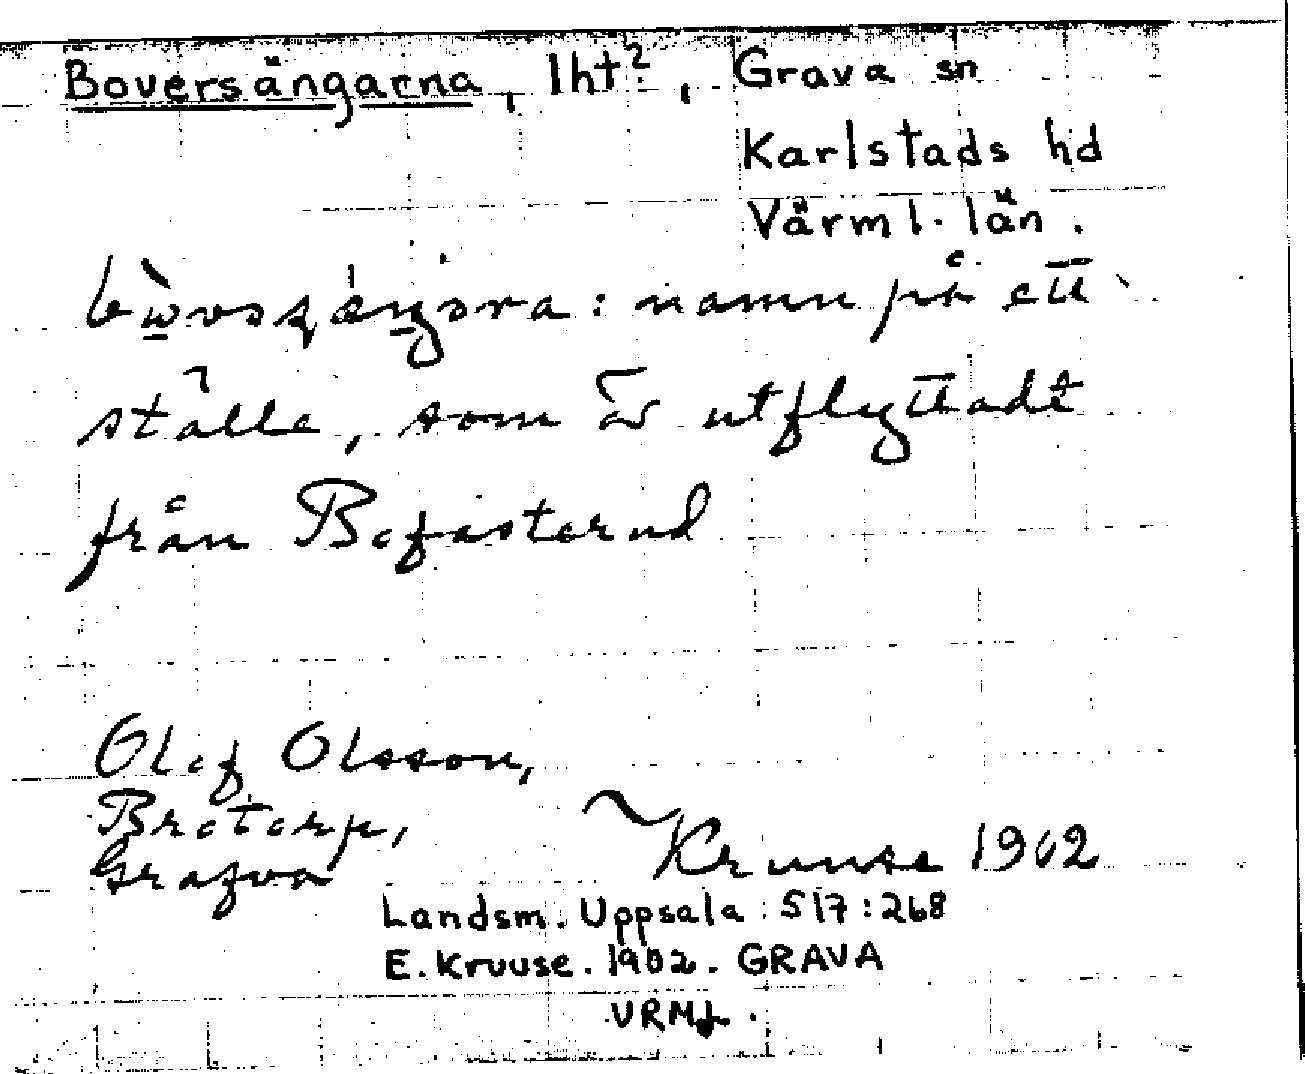 Boversängarna, lht?, Grava sn
Karlstads hd
Värml. län.
: namn på ett
ställe, som är utflyttadt
från Befasterud
Olof Olsson,
Brotorp,
Grafva
Kruuse 1902
Landsm. Uppsala: 517:268
E. Kruuse. 1902. GRAVA
VRML.